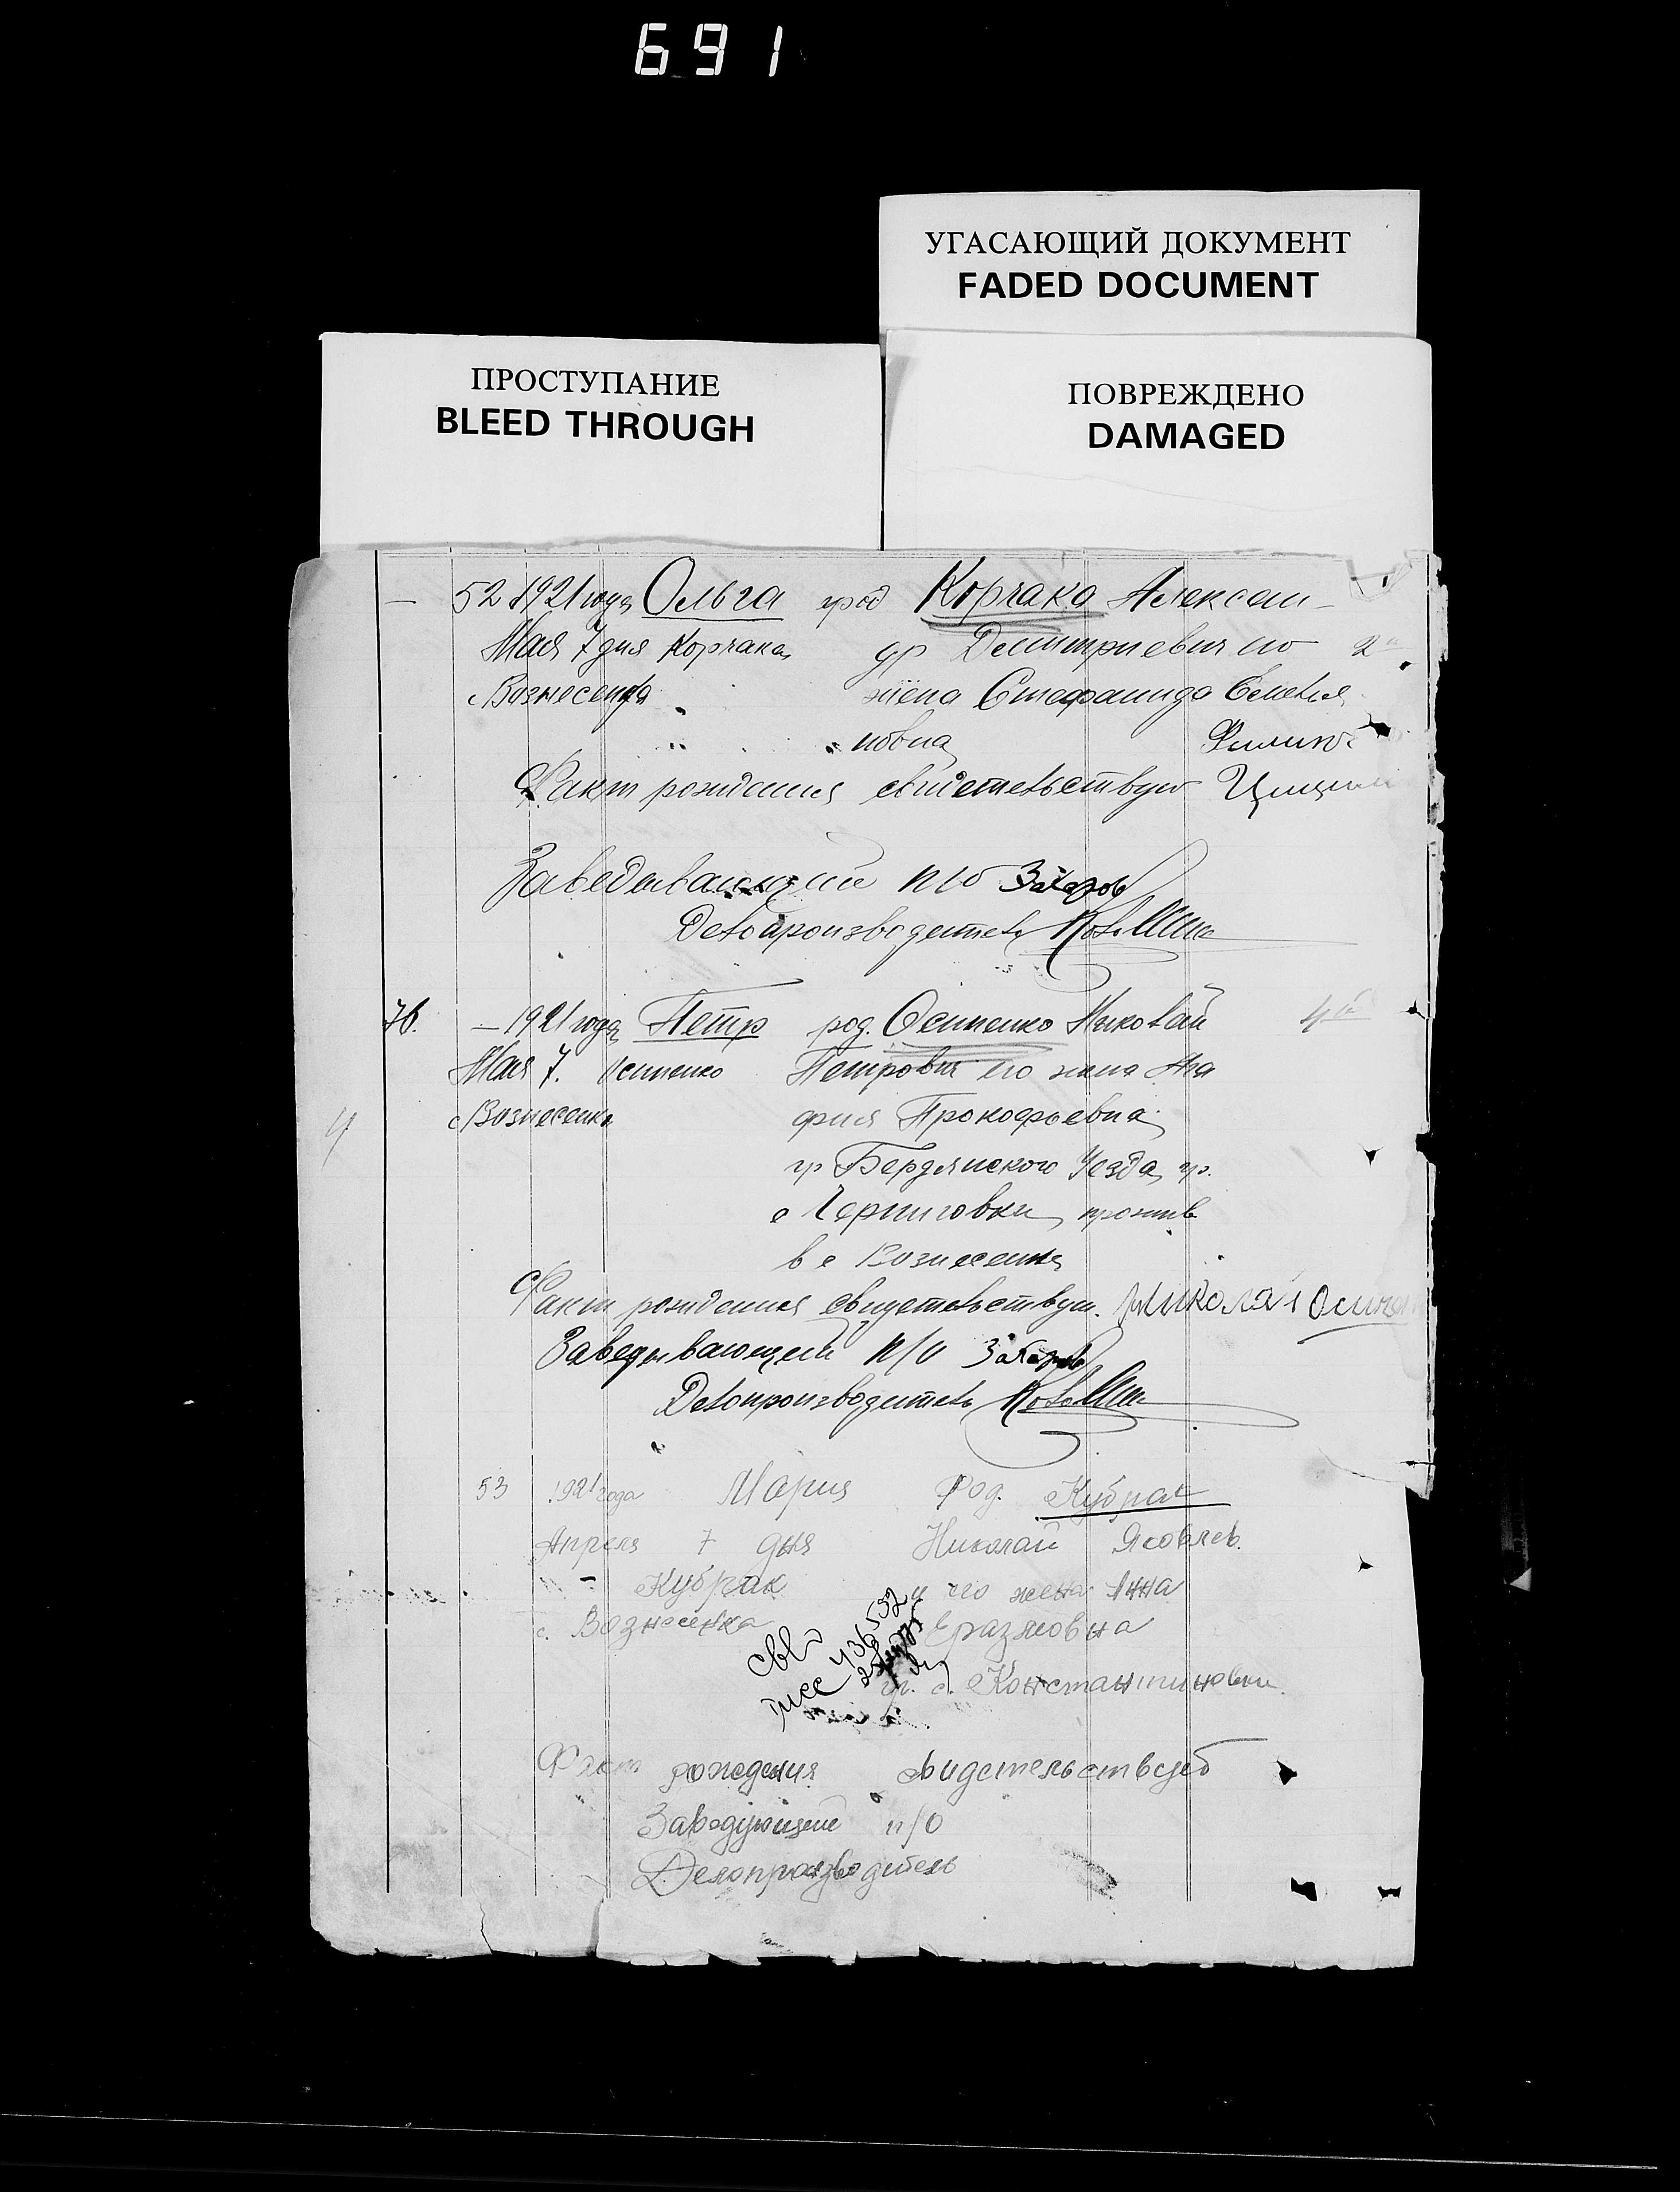 691
УГАСАЮЩИЙ ДОКУМЕНТ
FADED DOCUMENT
ПРОСТУПАНИЕ
BLEED THROUGH
ПОВРЕЖДЕНО
DAMAGED
— 52 1921 года Ольга род Корчако Алексан-
Мая 7 дня Корчака др Дмитриевич его 2
с Вознесенка жена Стефанида Емелья
новна
Факт рождения свидетельствую
Заведывающий п/о Захаров
Делопроизводитель
76. — 1921 года Петр род. Осипенко Николай 4й
Мая 7. Осипенко Петрович его жена Ага
с Вознесенка фия Прокофьевна
гр Бердянского Уезда гр.
с Черниговки прожив
в с Вознесенке
Факт рождения свидетельствую. Николай Осипен
Заведывающий п/о Захаров
Делопроизводитель
53 1921 года Мария Род. Кубрак
Апреля 7 дня Николай Яковлев.
Кубрак и его жена Анна
с. Вознесенка Еразмовна
436532
гр. с. Константиновки
Факт рождения свидетельствует
Заведующий п/о
Делопроизводитель